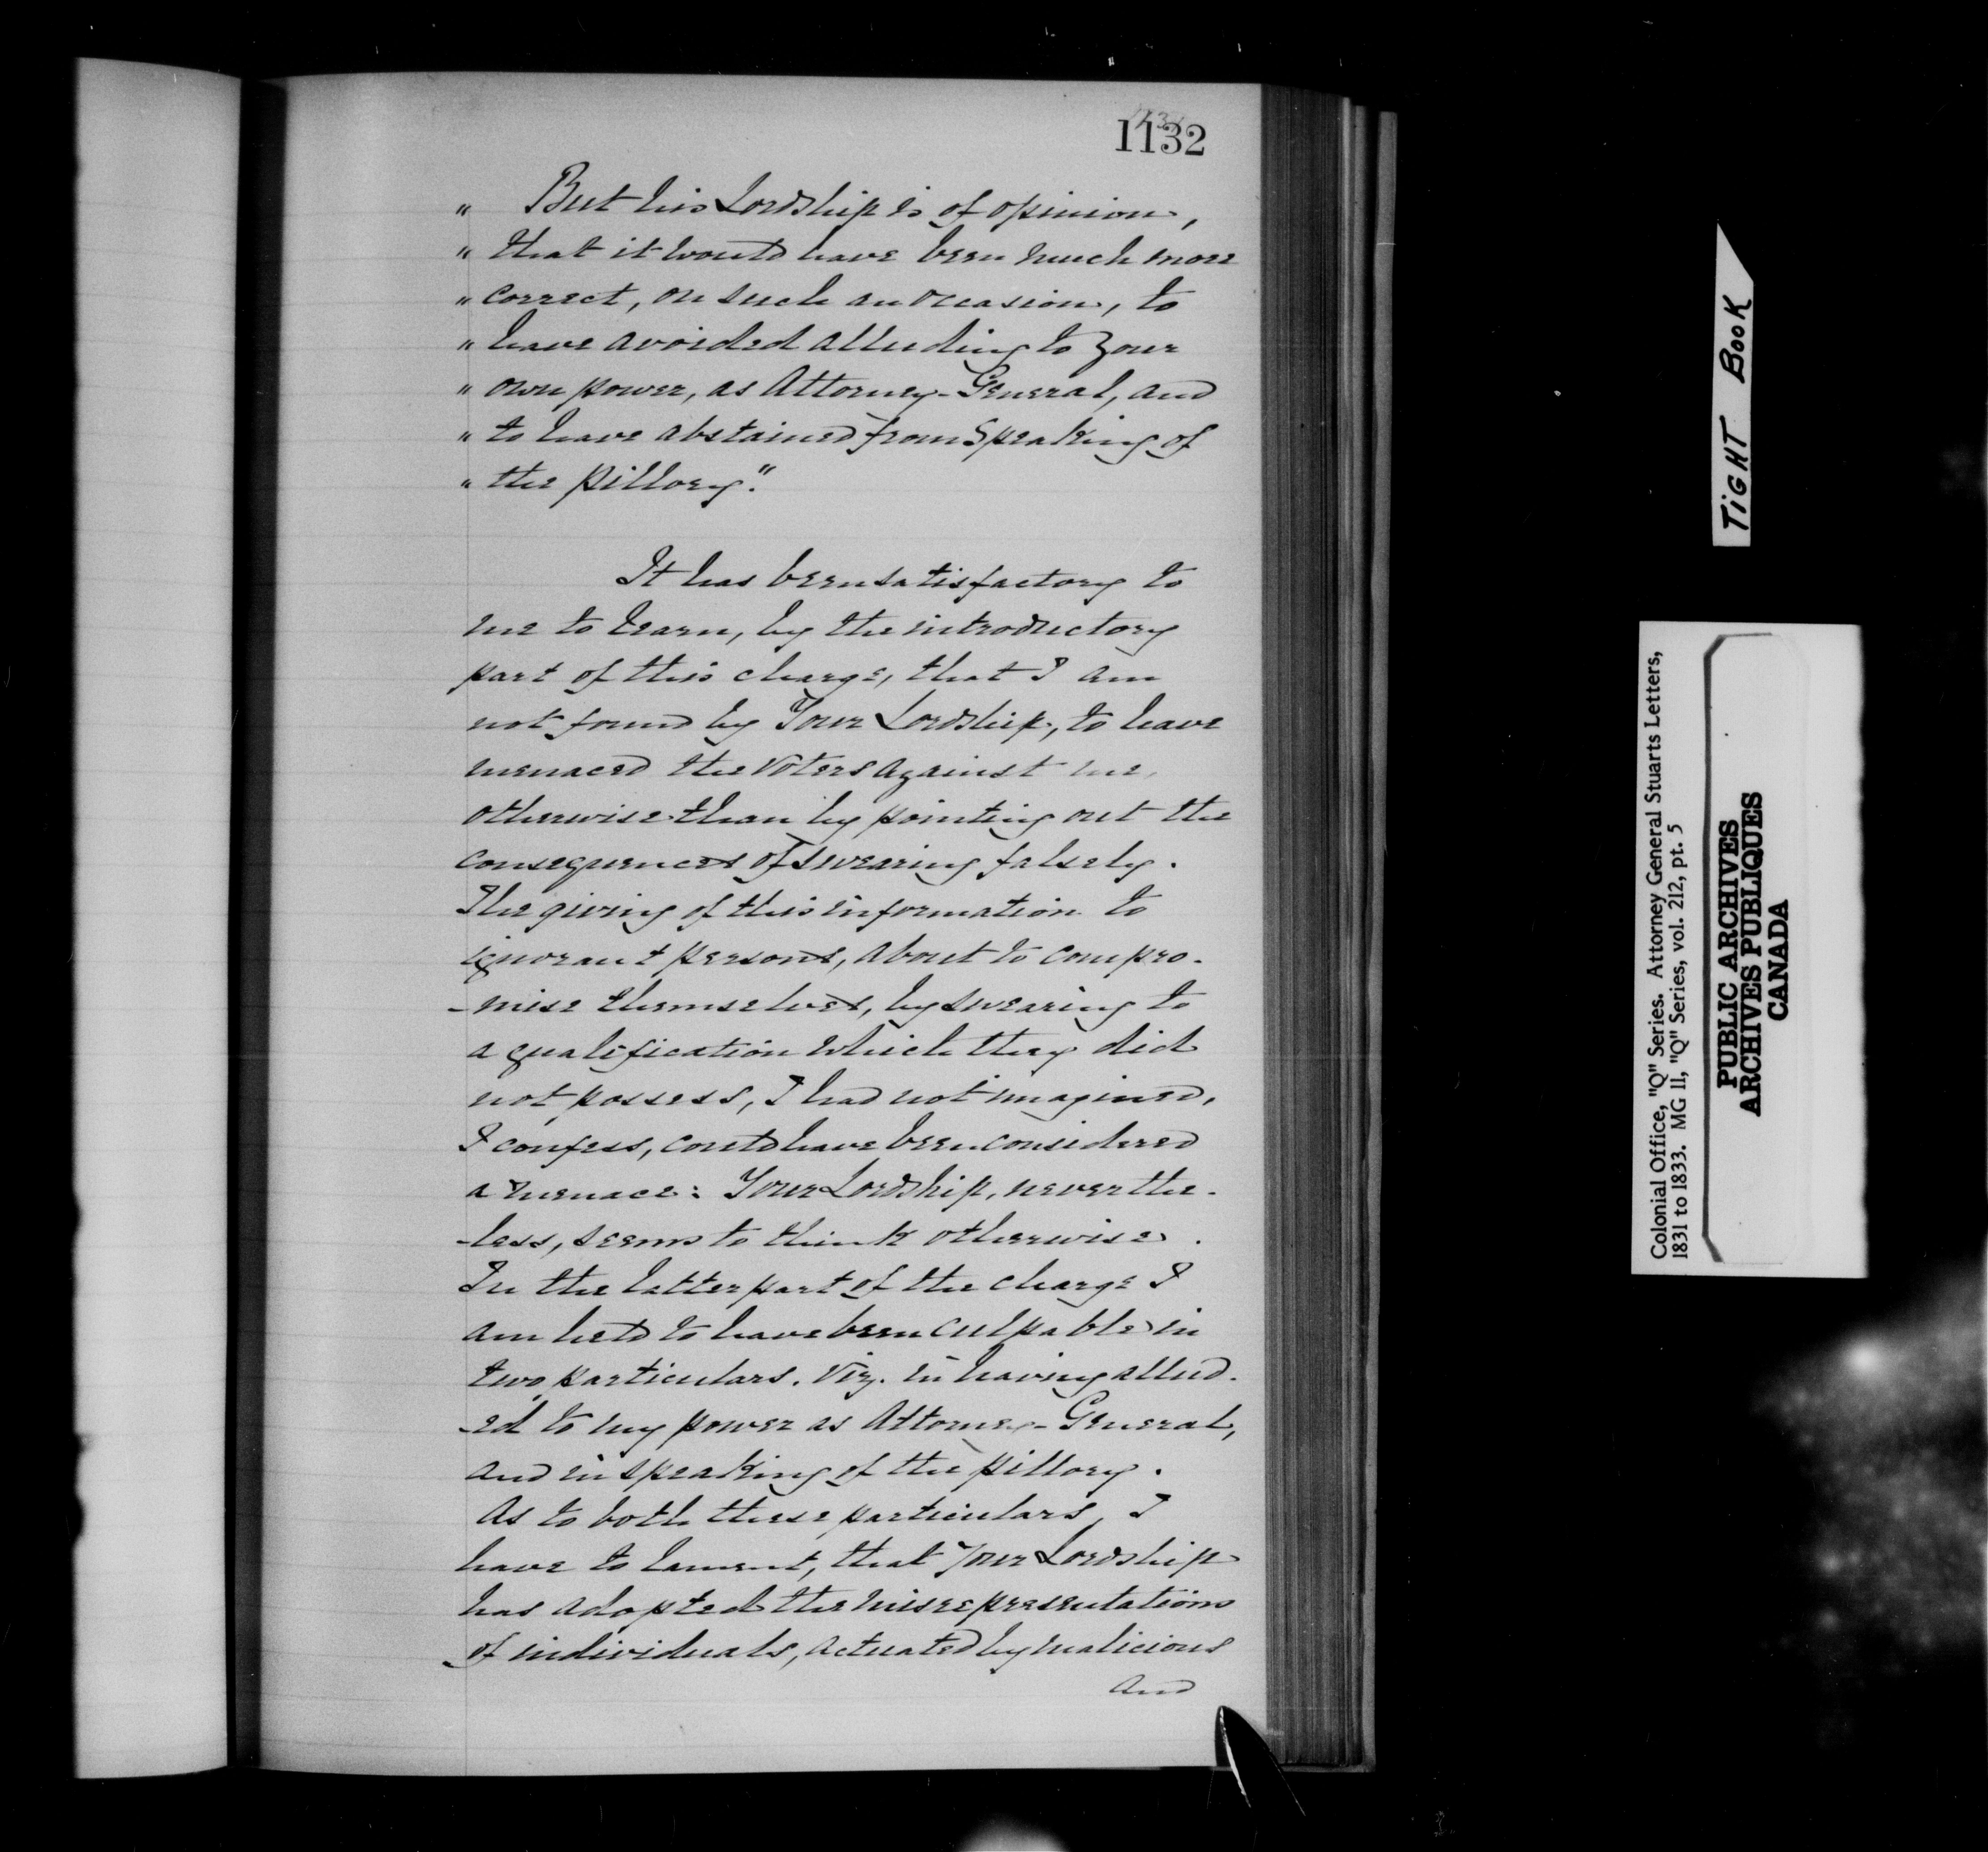 1132
" But his Lordship is of opinion,
" that it would have been much more
" correct, on such an occasion, to
" have avoided alluding to your
" own power, as Attorney-General, and
" to have abstained from speaking of
" the pillory."
It has been satisfactory to
me to learn, by the introductory
part of this charge, that I am
not found by Your Lordship, to have
menaced the voters against me,
otherwise than by pointing out the
consequences of swearing falsely.
The giving of this information to
ignorant persons, about to compro-
-mise themselves, by swearing to
a qualification which they did
not possess, I had not imagined,
I confess, could have been considered
a menace: Your Lordship, never the-
-less, seems to think otherwise.
In the latter part of the charge I
am held to have been culpable in
two particulars. Viz. in having allud-
-ed to my power as Attorney-General,
and in speaking of the pillory.
As to both these particulars, I
have to lament, that Your Lordship
has adopted the misrepresentations
of individuals, actuated by malicious
and
TIGHT BOOK
Colonial Office, "Q" Series. Attorney General Stuarts Letters,
1831 to 1833. MG 11, "Q" Series, vol. 212, pt. 5
PUBLIC ARCHIVES
ARCHIVES PUBLIQUES
CANADA